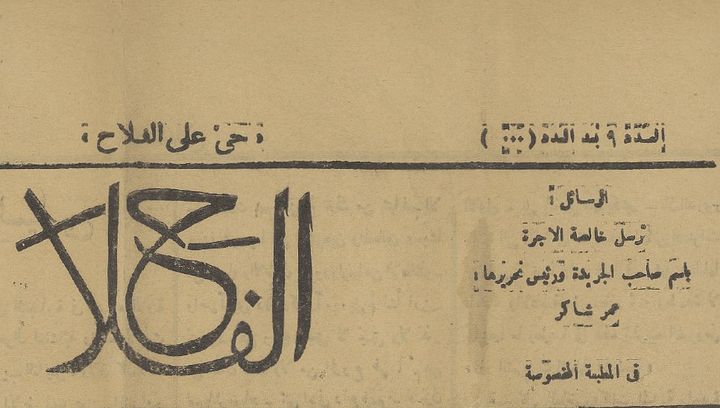 العدد ٩ بعد المئة (٠٠٠)
« حيّ على الفلاح »
الرسائل :
ترسل خالصة الاجرة
باسم صاحب الجريدة ورئيس تحريرها :
عمر شاكر
في المطبعة المخصوصة
الفلاح